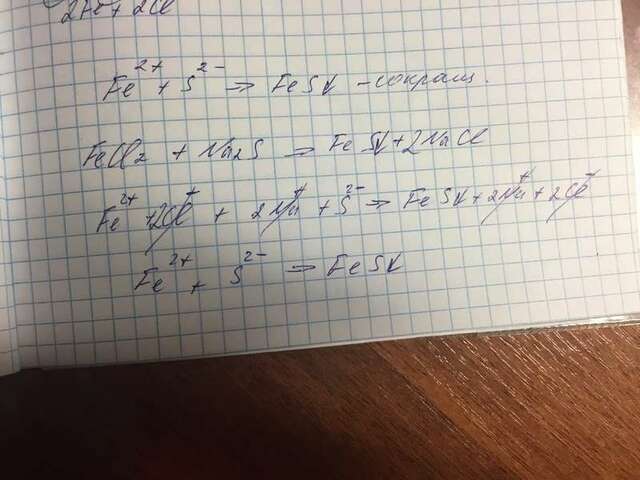 2Fe + 2Cl
Fe²⁺ + S²⁻ ⇒ FeS↓ - сокращ.
FeCl₂ + Na₂S ⇒ FeS↓ + 2NaCl
Fe²⁺ + 2Cl⁻ + 2Na⁺ + S²⁻ ⇒ FeS↓ + 2Na⁺ + 2Cl⁻
Fe²⁺ + S²⁻ ⇒ FeS↓